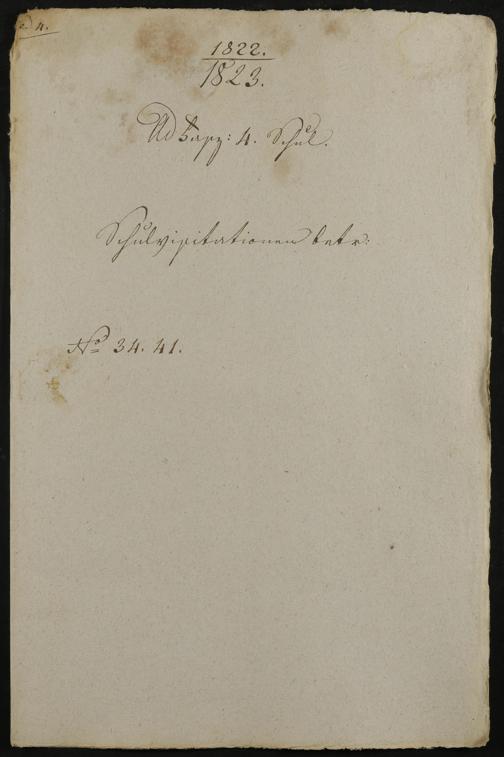 4.
1822.
1823.
Ad 4. Schul.
Schulvisitationen betr:
No 34. 41.